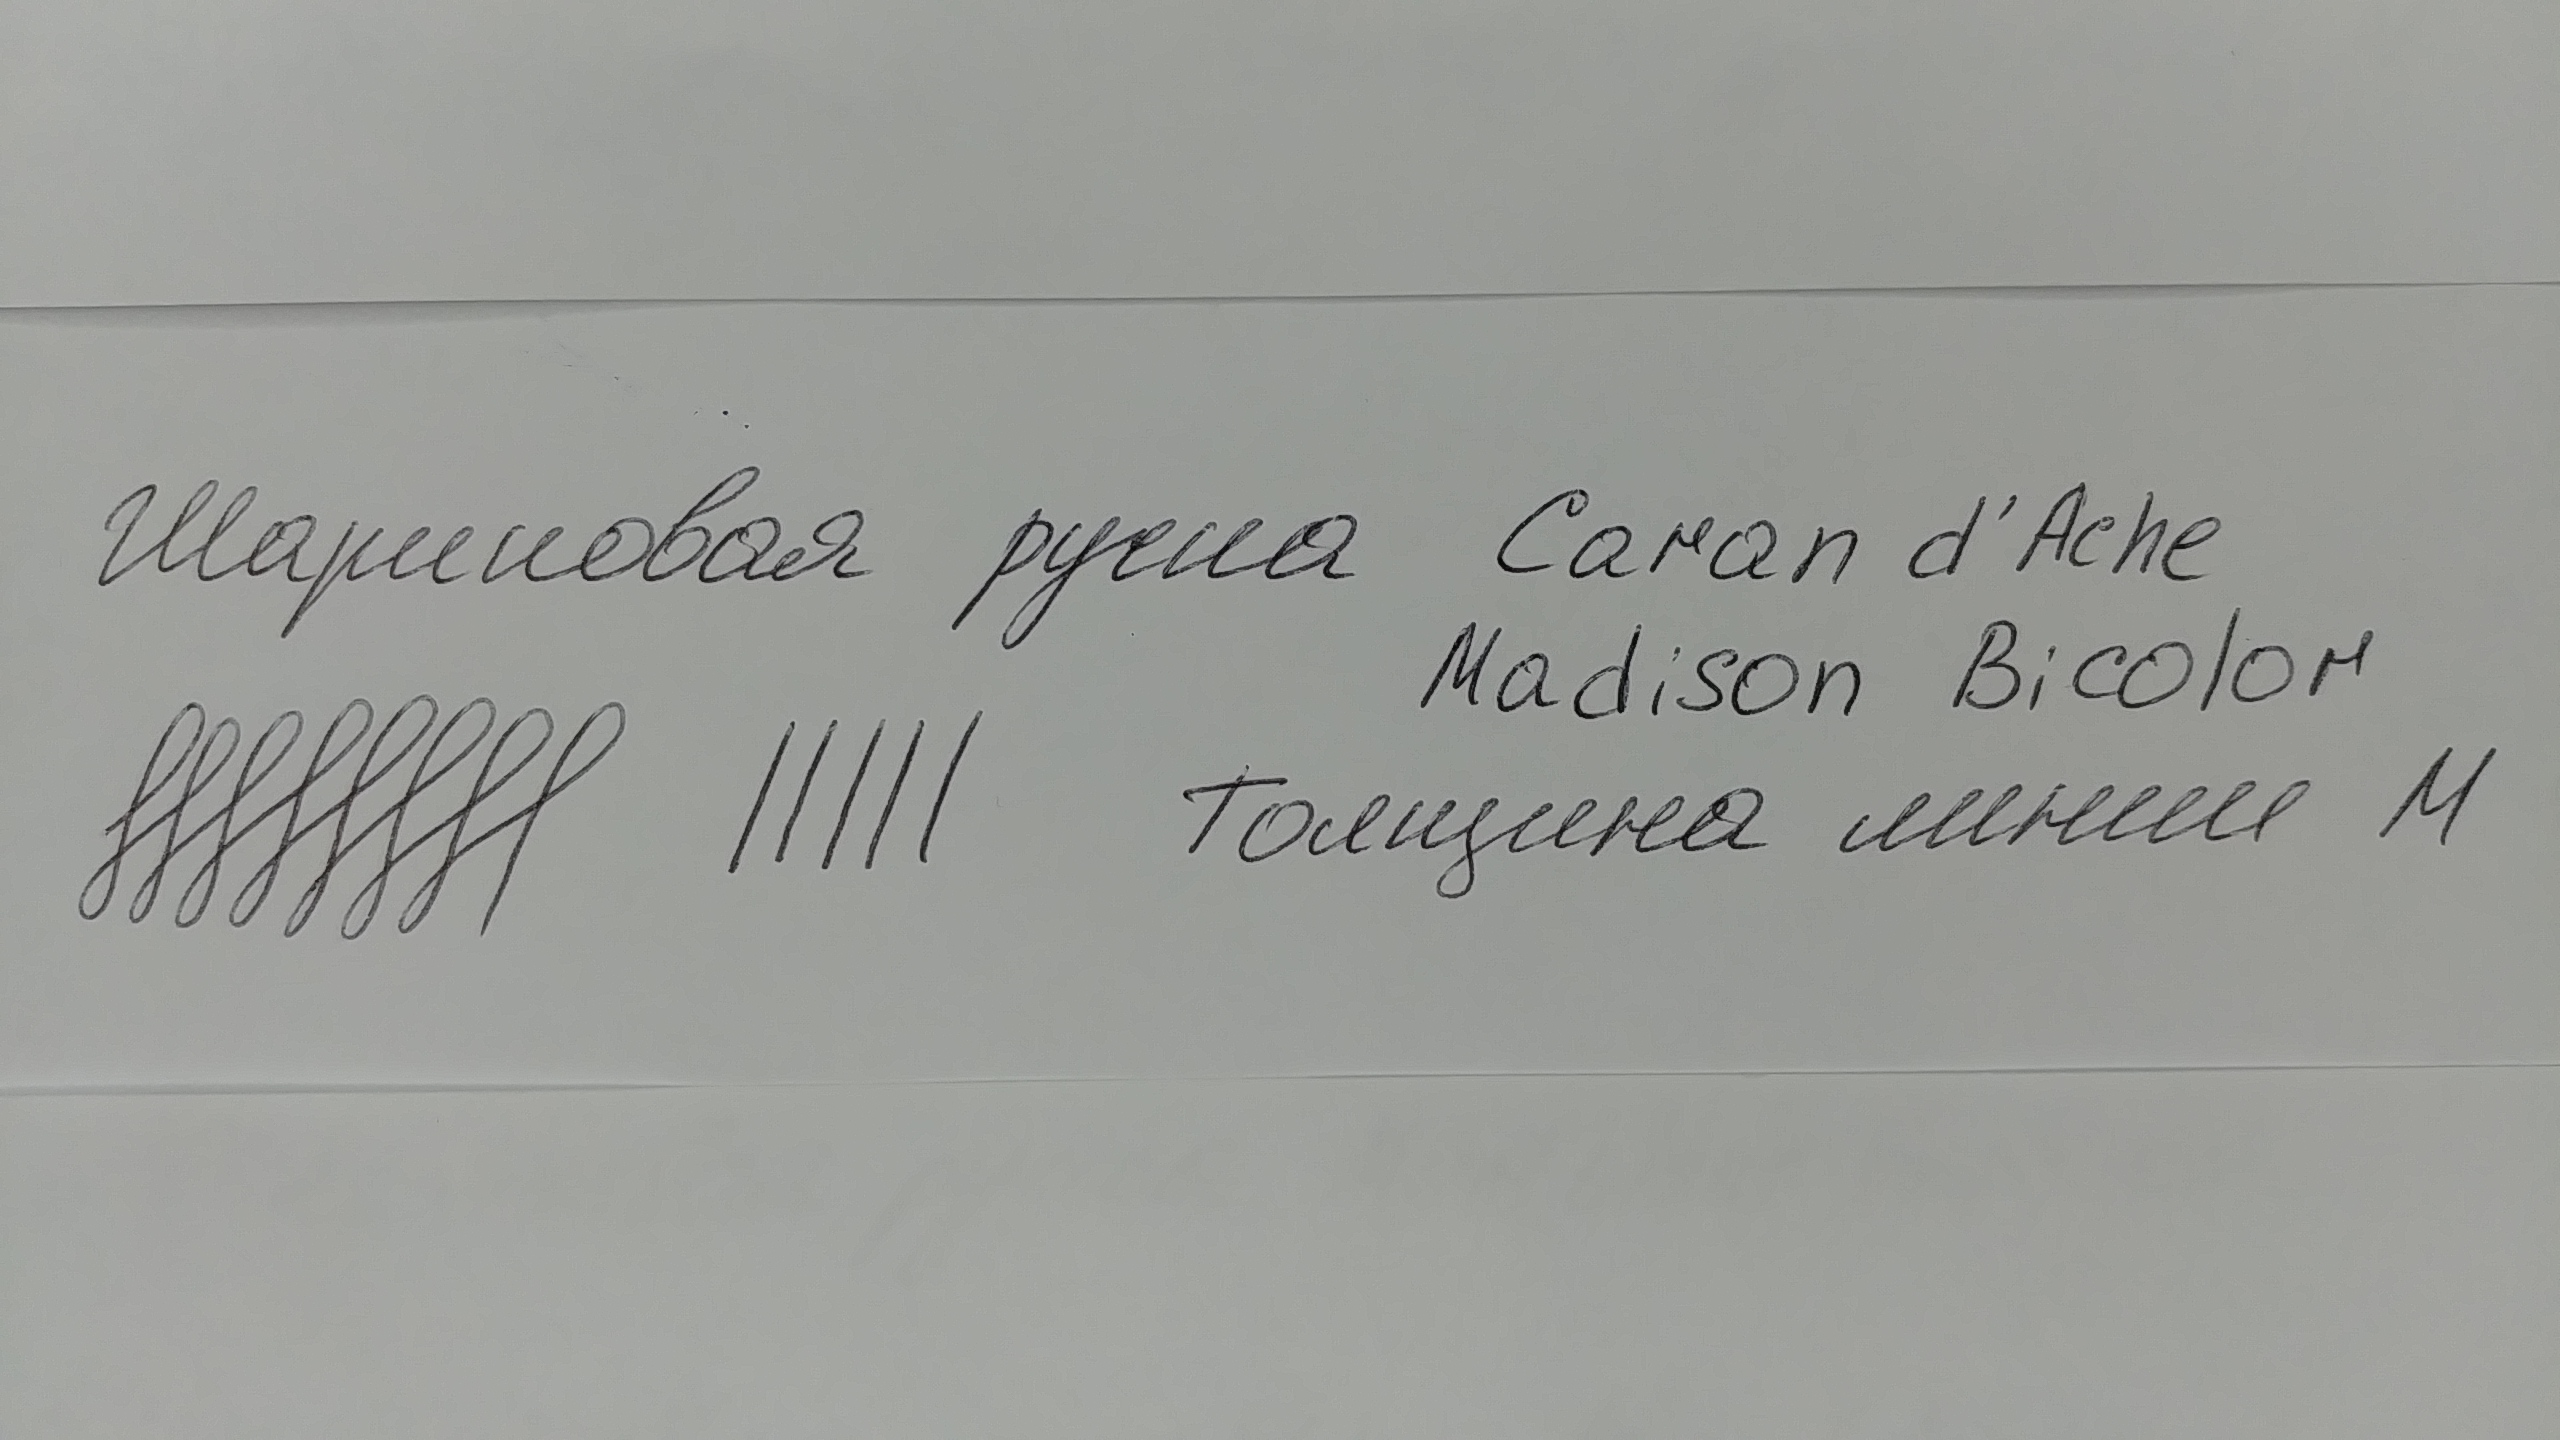 Шариковая ручка Caran d'Ache
Madison Bicolor
Толщина линии M